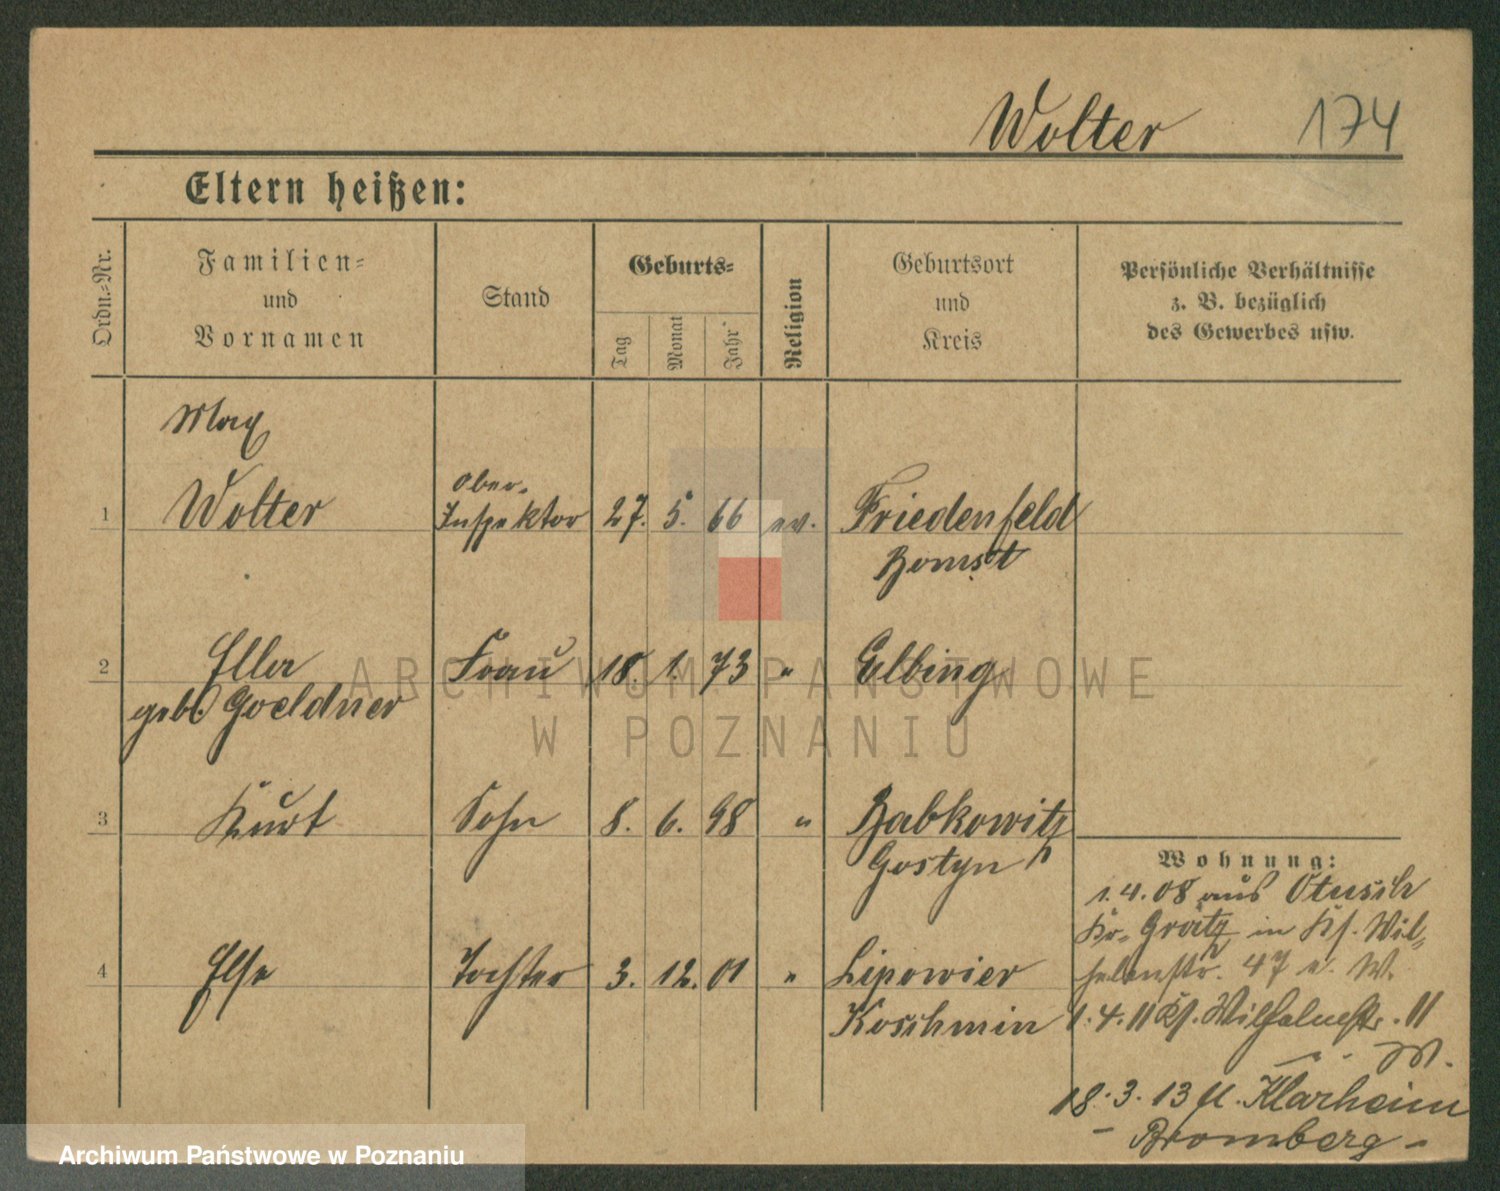 Wolter 174
Eltern heißen:
Ordn.-Nr.
Familien-
und
Vornamen
Stand
Geburts-
Tag
Monat
Jahr
Religion
Geburtsort
und
Kreis
Persönliche Verhältnisse
z. B. bezüglich
des Gewerbes usw.
Max
Ober-
1 Wolter Inspektor 27. 5. 66 ev. Friedenfeld
Bomst
2 Ella Frau 18. 1. 73 " Elbing
geb. Goeldner
3 Kurt Sohn 8. 6. 98 " Babkowitz
Gostyn
4 Else Tochter 3. 12. 01 " Lipowiec
Koschmin
Wohnung:
1.4.08 aus Otusch
Kr. Grätz in Wil-
helmstr. 47
1.4.11 Wilhelmstr. 11
18.3.13 Klarheim
- Bromberg -
ARCHIWUM PAŃSTWOWE
W POZNANIU
Archiwum Państwowe w Poznaniu